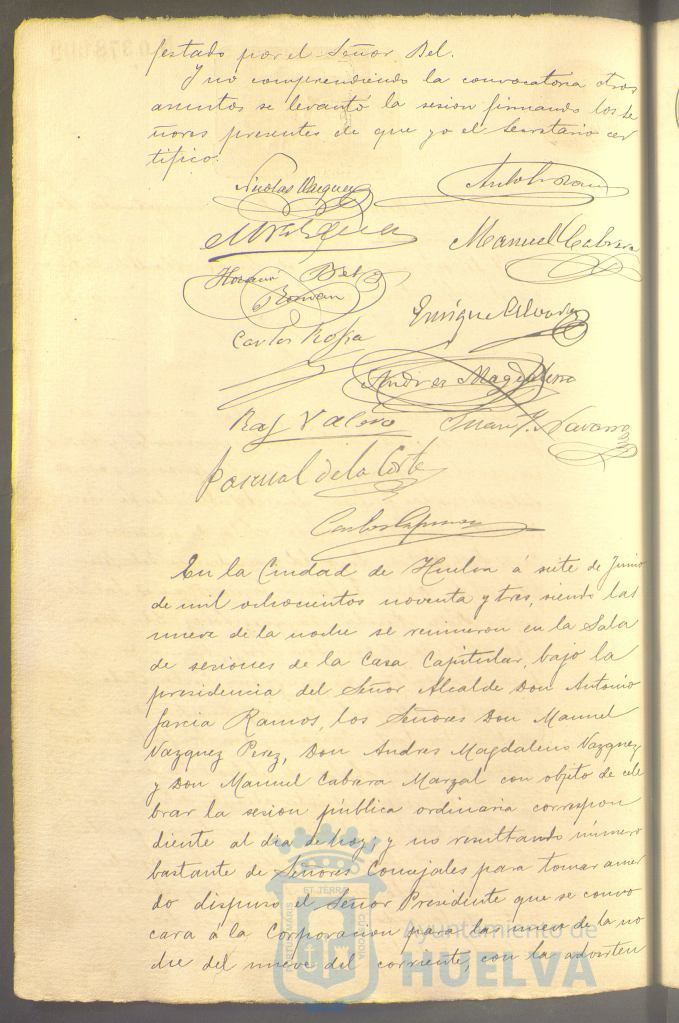 festado por el Señor Bel.
Y no comprendiendo la convocatoria otros
asuntos se levantó la sesion firmando los Se
ñores presentes de que yo el Secretario cer
tifico.
Nicolas Vazquez
M Vazquez
Manuel Cabrera
Bel
Roman
Enrique
Carlos Rossa
Andres Magdaleno
Raf Valero
Juan J. Navarro
Pascual de la Corte
Carlos
En la Ciudad de Huelva á siete de Junio
de mil ochocientos noventa y tres, siendo las
nueve de la noche se reunieron en la Sala
de sesiones de la Casa Capitular, bajo la
presidencia del Señor Alcalde Don Antonio
Garcia Ramos, los Señores Don Manuel
Vazquez Perez, Don Andres Magdaleno Vazquez,
y Don Manuel Cabrera Marzal con objeto de cele
brar la sesion pública ordinaria correspon
diente al dia de hoy; y no resultando número
bastante de Señores Concejales para tomar acuer
do dispuso el Señor Presidente que se convo
cara á la Corporacion para las nueve de la no
che del nueve del corriente, con la adverten
ET TERRÆ
CUSTODIA
Ayuntamiento de
HUELVA